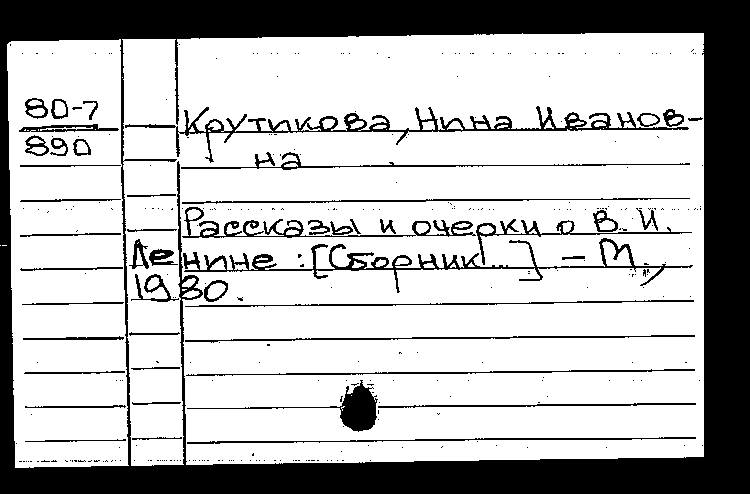 80-7
890
Крутикова, Нина Иванов-
на
Рассказы и очерки о В. И.
Ленине : [Сборник...] – М.,
1980.